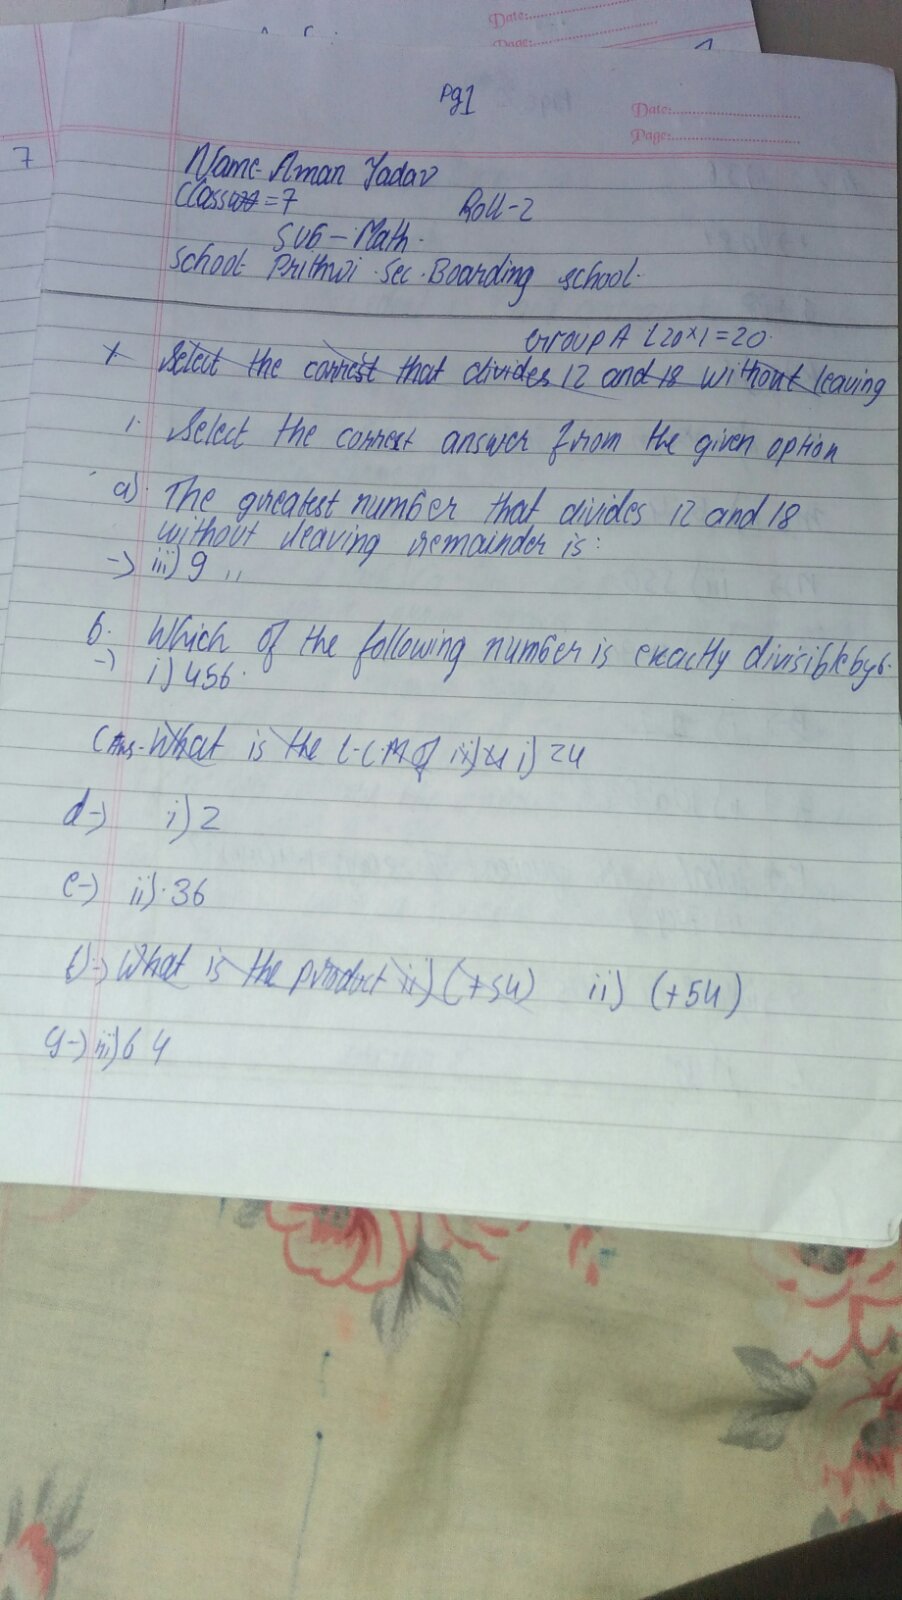 Date:
Page:
pg1
Date:
Page:
7
Name- Aman Yadav
Class = 7 Roll-2
Sub - Math.
School- Prithvi Sec. Boarding school.
Group A [20×1=20
1 Select the correst that divides 12 and 18 without leaving
1. Select the correst answer from the given option
a). The greatest number that divides 12 and 18
without leaving remainder is:
-> iii) 9 ,,
b. Which of the following number is exactly divisible by 6.
-> i) 456.
C Ans- What is the L.C.M of ii) i) 24
d-> i) 2
e-> ii). 36
f)-> What is the product ii) (+54) ii) (+54)
g-> iii) 64